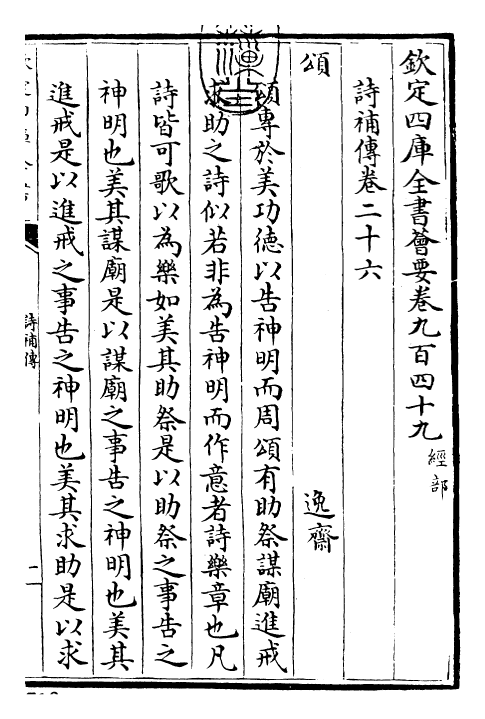 欽定四庫全書薈要卷九百四十九 經部
詩補傳卷二十六
頌 逸齋
頌專於美功德以告神明而周頌有助祭謀廟進戒
求助之詩似若非為告神明而作意者詩樂章也凡
詩皆可歌以為樂如美其助祭是以助祭之事告之
神明也美其謀廟是以謀廟之事告之神明也美其
進戒是以進戒之事告之神明也美其求助是以求
詩補傳